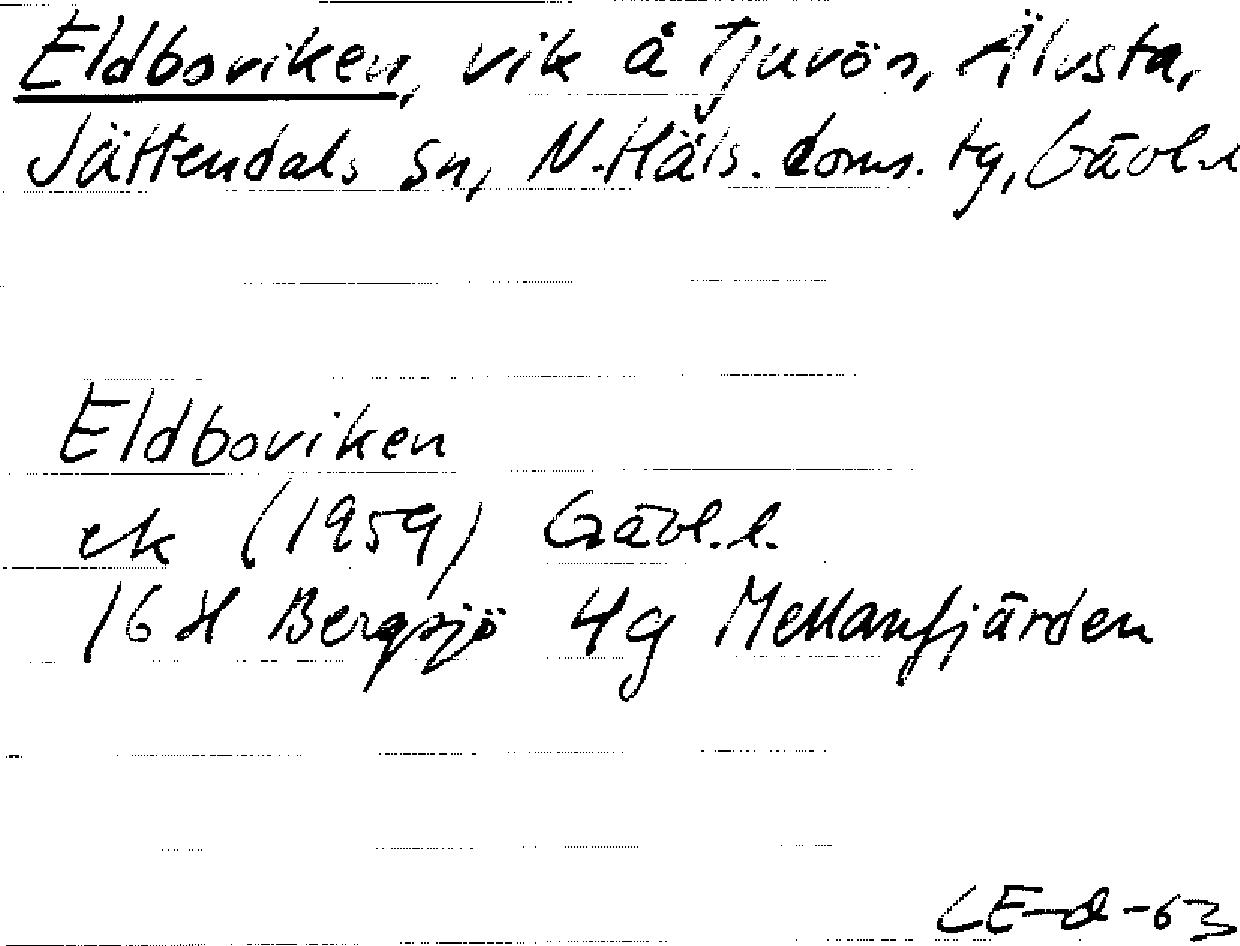 Eldboviken, vik å Tjuvön, Älvsta,
Jättendals sn, N. Häls. doms. tg, Gävl.l
Eldboviken
ek (1959) Gävl.l.
16 H Bergsjö 4g Mellanfjärden
CE-d-63